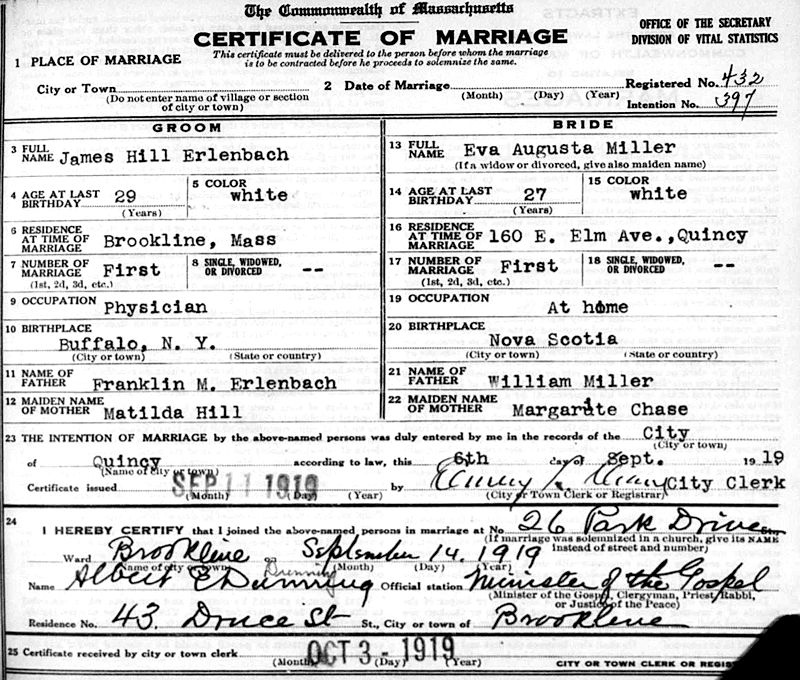 The Commonwealth of Massachusetts
CERTIFICATE OF MARRIAGE
OFFICE OF THE SECRETARY
DIVISION OF VITAL STATISTICS
This certificate must be delivered to the person before whom the marriage
is to be contracted before he proceeds to solemnize the same.
1 PLACE OF MARRIAGE
City or Town
(Do not enter name of village or section
of city or town)
2 Date of Marriage
(Month) (Day) (Year)
Registered No. 432
Intention No. 397
GROOM
3 FULL NAME James Hill Erlenbach
4 AGE AT LAST BIRTHDAY 29
(Years)
5 COLOR
white
6 RESIDENCE AT TIME OF MARRIAGE Brookline, Mass
7 NUMBER OF MARRIAGE First
(1st, 2d, 3d, etc.)
8 SINGLE, WIDOWED, OR DIVORCED --
9 OCCUPATION
Physician
10 BIRTHPLACE
Buffalo, N. Y.
(City or town) (State or country)
11 NAME OF FATHER Franklin M. Erlenbach
12 MAIDEN NAME OF MOTHER Matilda Hill
BRIDE
13 FULL NAME Eva Augusta Miller
(If a widow or divorced, give also maiden name)
14 AGE AT LAST BIRTHDAY 27
(Years)
15 COLOR
white
16 RESIDENCE AT TIME OF MARRIAGE 160 E. Elm Ave.,Quincy
17 NUMBER OF MARRIAGE First
(1st, 2d, 3d, etc.)
18 SINGLE, WIDOWED, OR DIVORCED --
19 OCCUPATION
At home
20 BIRTHPLACE
Nova Scotia
(City or town) (State or country)
21 NAME OF FATHER William Miller
22 MAIDEN NAME OF MOTHER Margarite Chase
23 THE INTENTION OF MARRIAGE by the above-named persons was duly entered by me in the records of the City
(City or town)
of Quincy according to law, this 6th day of Sept. 1919
(Name of city or town)
Certificate issued SEP 11 1919 by City Clerk
(Month) (Day) (Year) (City or Town Clerk or Registrar)
24
I HEREBY CERTIFY that I joined the above-named persons in marriage at No. 26 Park Drive St.,
(If marriage was solemnized in a church, give its NAME
instead of street and number)
Ward Brookline on September 14, 1919
(Name of city or town) (Month) (Day) (Year)
Dunning
Name Albert E Dunning Official station Minister of the Gospel
(Minister of the Gospel, Clergyman, Priest, Rabbi,
or Justice of the Peace)
Residence No. 43. Druce St St., City or town of Brookline
25 Certificate received by city or town clerk OCT 3 - 1919
(Month) (Day) (Year)
CITY OR TOWN CLERK OR REGIS